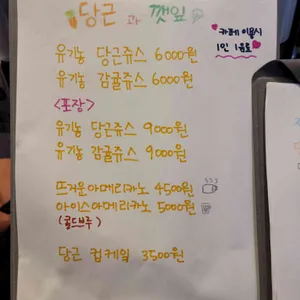 당근 과 깻잎
카페 이용시
1인 1음료
유기농 당근쥬스 6000원
유기농 감귤쥬스 6000원
<포장>
유기농 당근쥬스 9000원
유기농 감귤쥬스 9000원
뜨거운아메리카노 4500원
아이스아메리카노 5000원
(콜드브루)
당근 컵케잌 3500원